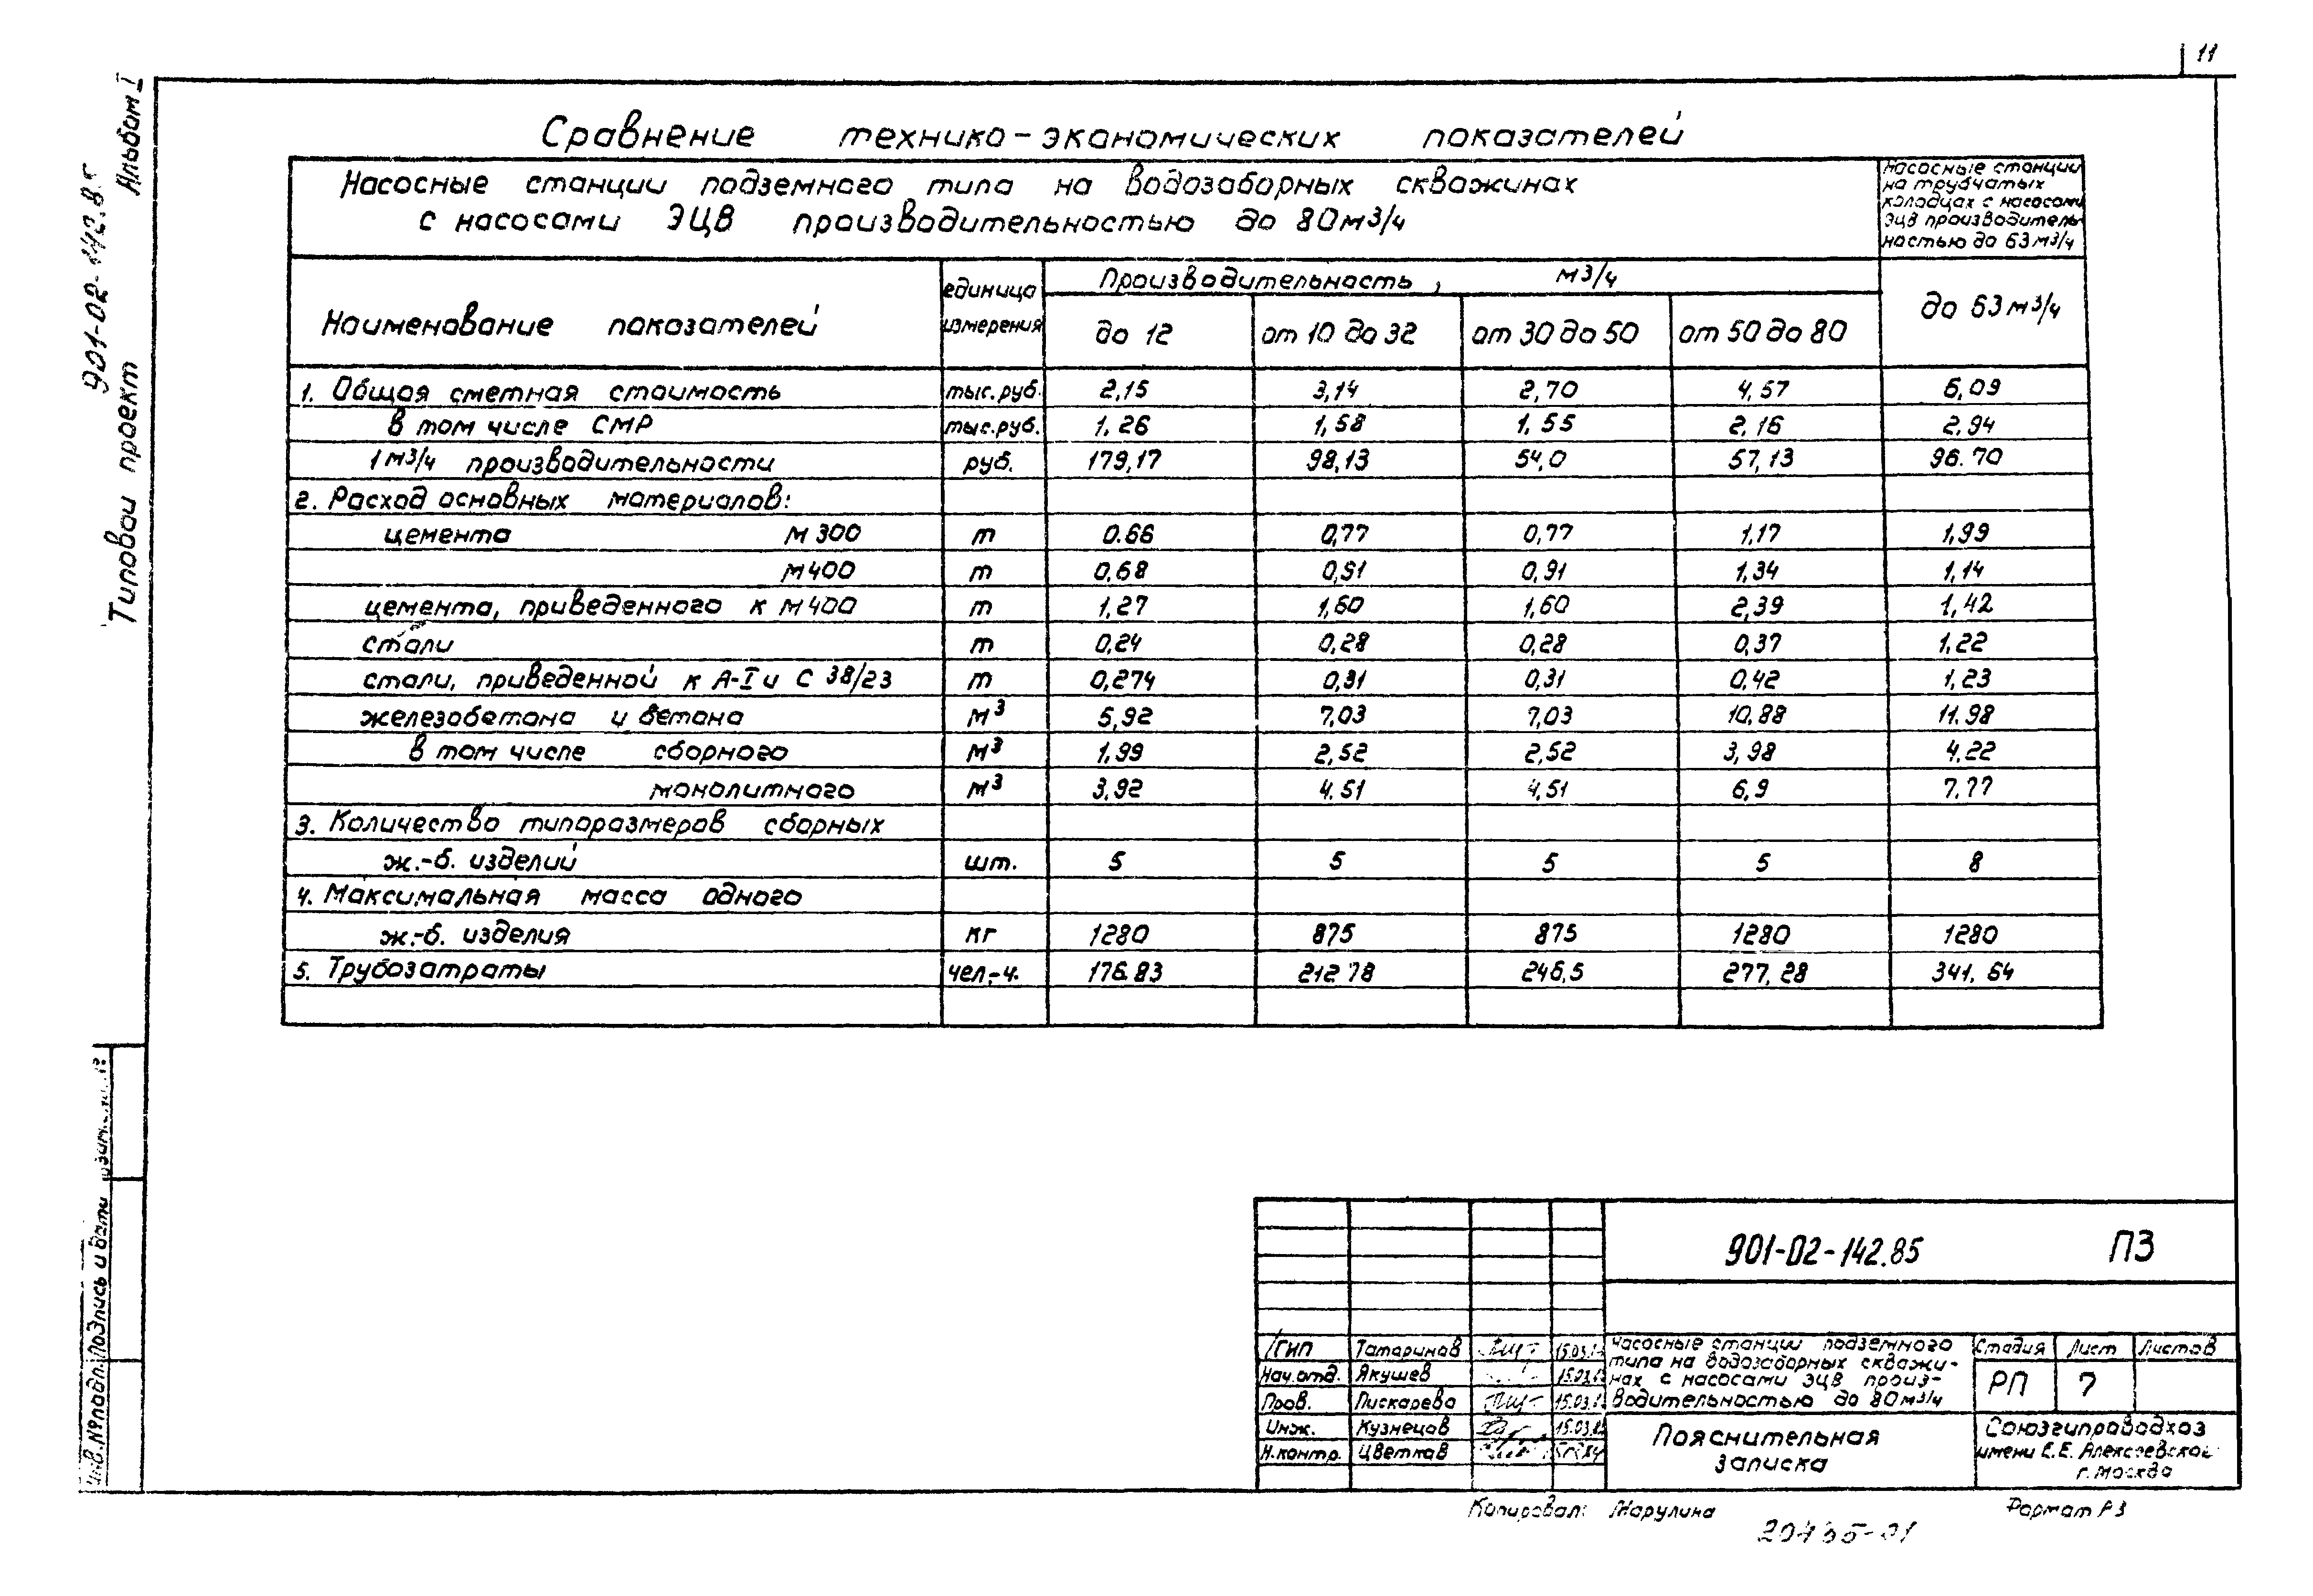 11
Альбом I
901-02-142.85
Типовой проект
Сравнение технико-экономических показателей
Насосные станции подземного типа на водозаборных скважинах
с насосами ЭЦВ производительностью до 80 м3/ч
Насосные станции
на трубчатых
колодцах с насосами
ЭЦВ производитель-
ностью до 63 м3/ч
Наименование показателей
единица
измерения
Производительность, м3/ч
до 12
от 10 до 32
от 30 до 50
от 50 до 80
до 63 м3/ч
1. Общая сметная стоимость тыс.руб. 2,15 3,14 2,70 4,57 6,09
в том числе СМР тыс.руб. 1.26 1,58 1,55 2,16 2,94
1 м3/ч производительности руб. 179,17 98,13 54,0 57,13 96.70
2. Расход основных материалов:
цемента М 300 т 0.66 0,77 0,77 1,17 1,99
М400 т 0,68 0,91 0,91 1,34 1,14
цемента, приведенного к М400 т 1,27 1,60 1,60 2,39 1,42
стали т 0,24 0,28 0,28 0,37 1,22
стали, приведенной к А-I и С 38/23 т 0,274 0,31 0,31 0,42 1,23
железобетона и бетона м3 5,92 7,03 7,03 10,88 11.98
в том числе сборного м3 1,99 2,52 2,52 3,98 4,22
монолитного м3 3,92 4.51 4,51 6,9 7,77
3. Количество типоразмеров сборных
ж.-б. изделий шт. 5 5 5 5 8
4. Максимальная масса одного
ж.-б. изделия кг 1280 875 875 1280 1280
5. Трубозатраты чел,-ч. 176.83 212 78 246,5 277,28 341,64
Инв.№подл. Подпись и дата
901-02-142.85 ПЗ
ГИП Татаринов
Нач.отд. Якушев
Пров. Пискарева
Инж. Кузнецов
Н.контр. Цветков
Насосные станции подземного
типа на водозаборных скважи-
нах с насосами ЭЦВ произ-
водительностью до 80 м3/ч
Стадия Лист Листов
РП 7
Пояснительная
записка
Союзгипроводхоз
имени Е.Е. Алексеевского
г. Москва
Копировал: Марулина
Формат А3